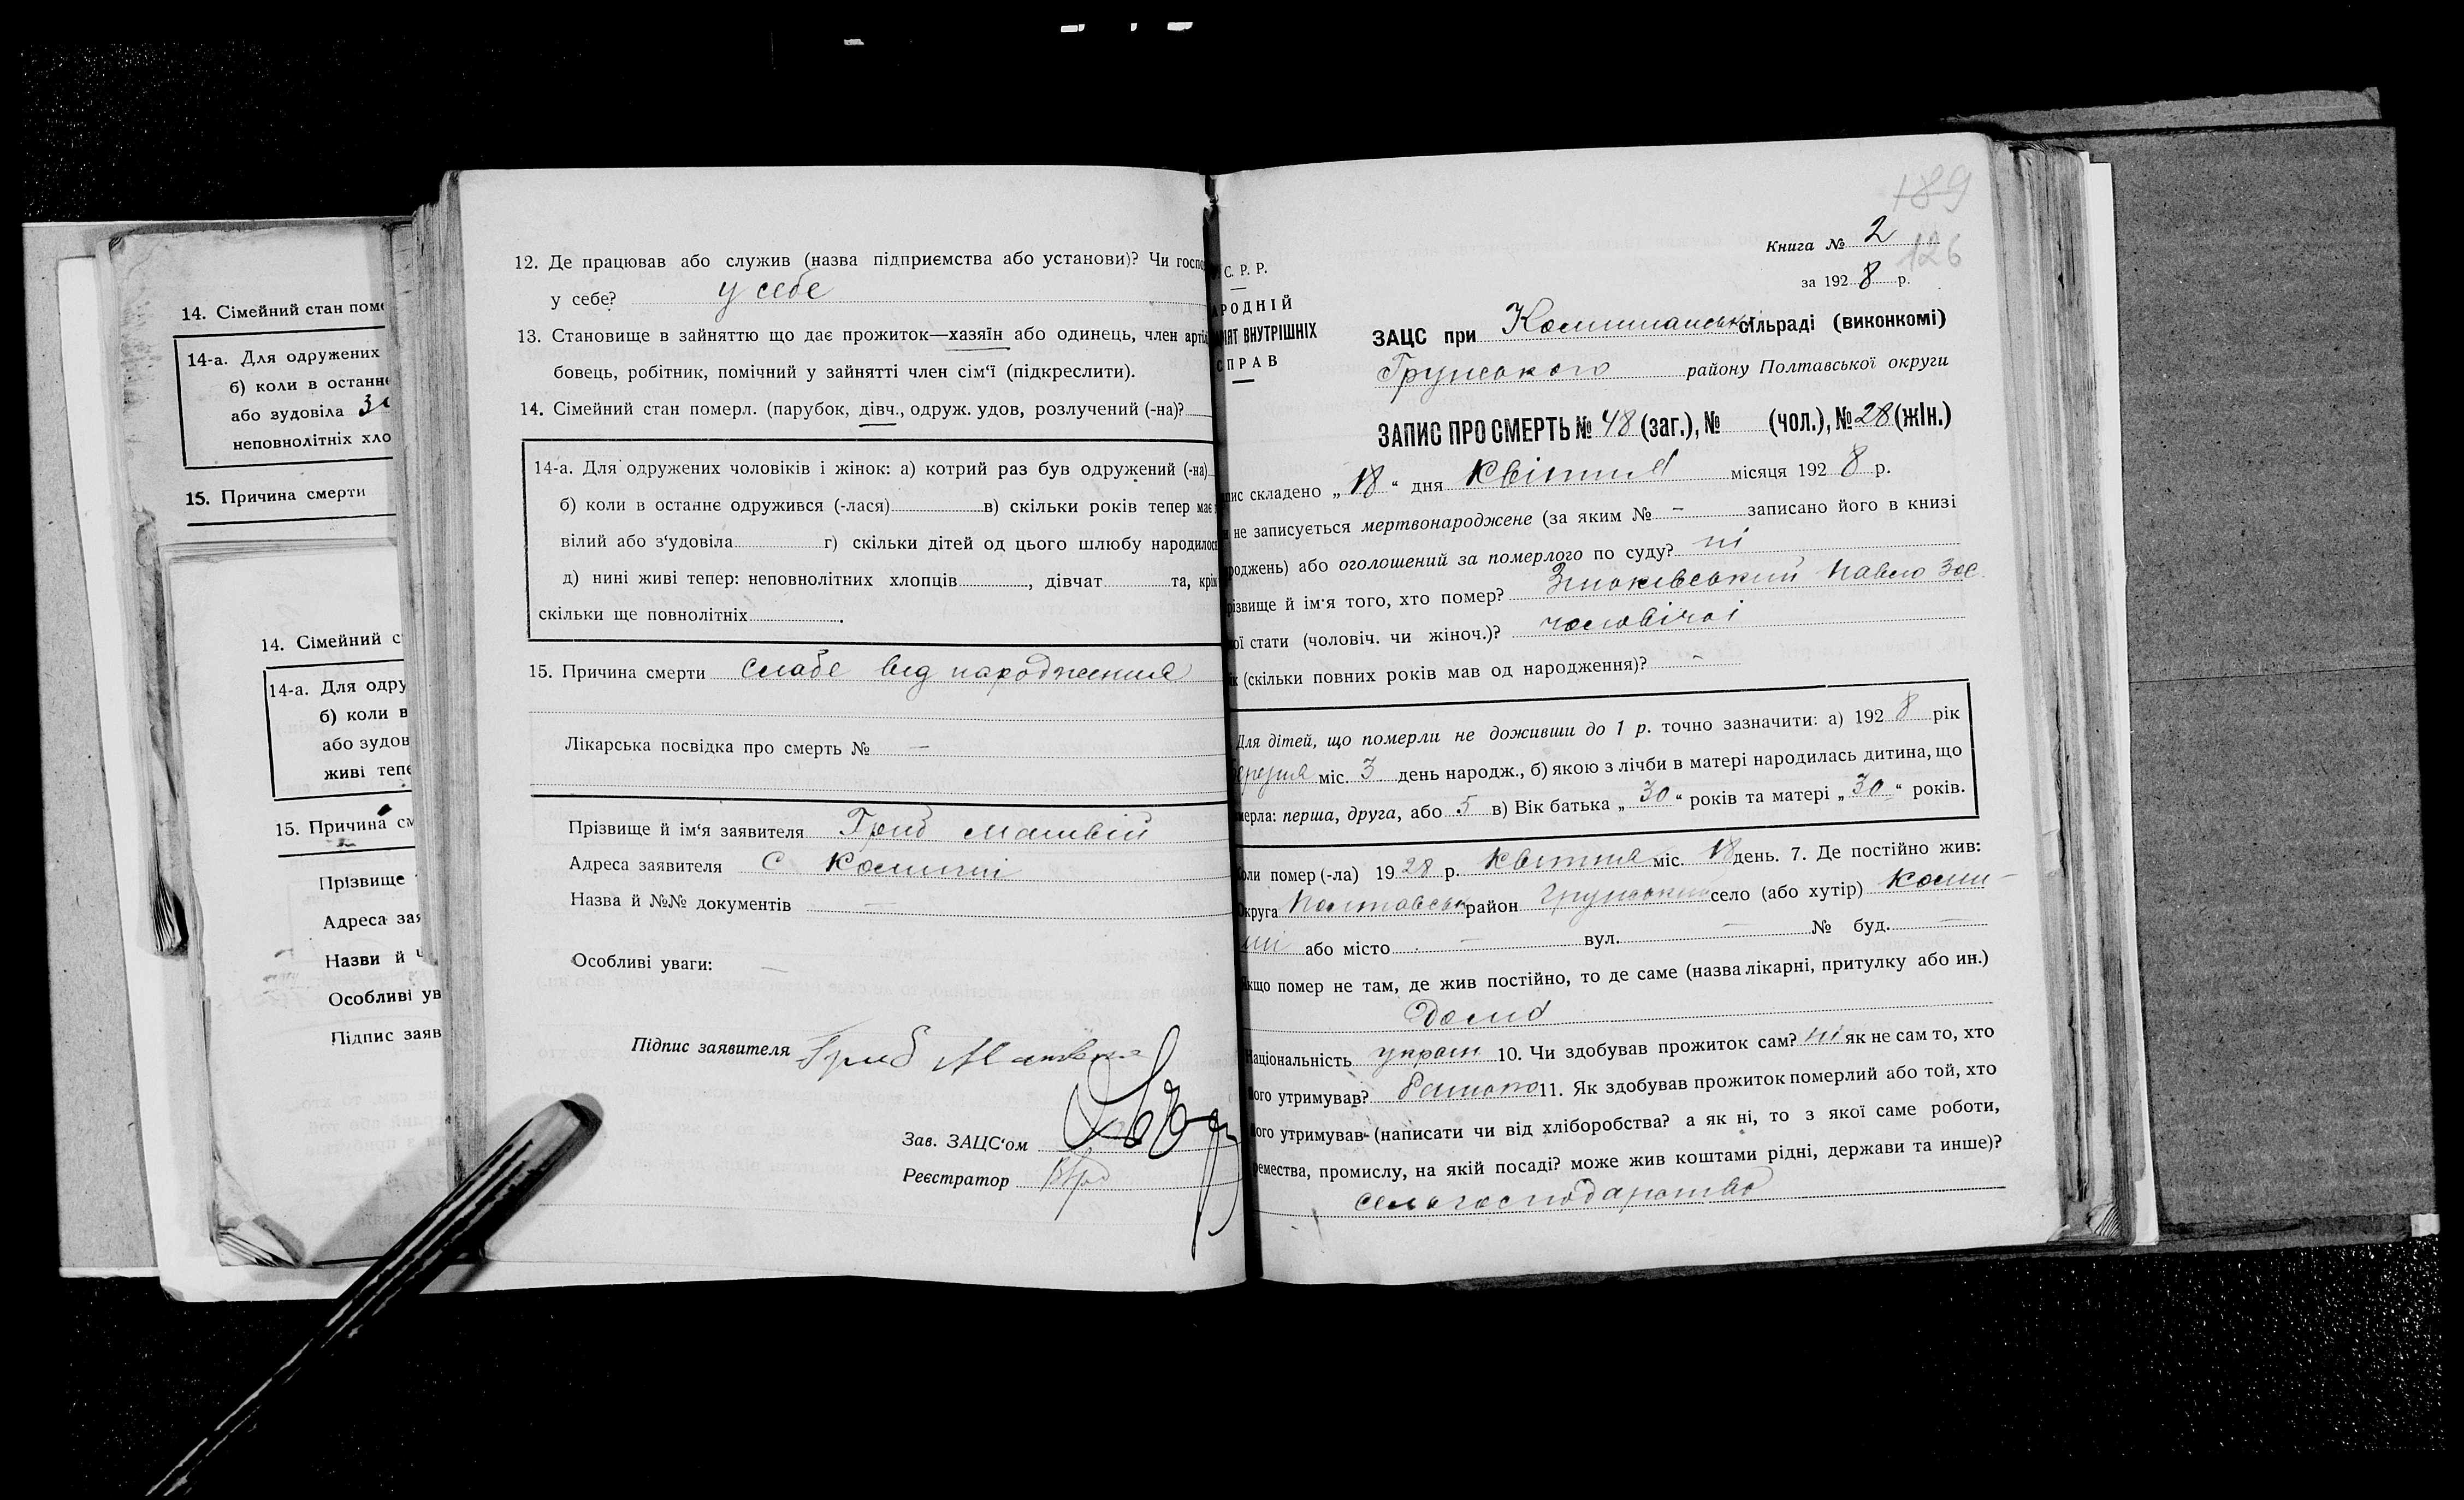 14. Сімейний стан поме
14-а. Для одружених
б) коли в останнє
або зудовіла
неповнолітніх хло
15. Причина смерти
14. Сімейний с
14-а. Для одру
б) коли в
або зудов
живі тепе
15. Причина см
Прізвище
Адреса зая
Назви й ч
Особливі ув
Підпис заяв
12. Де працював або служив (назва підприємства або установи)? Чи госпо
у себе? у себе
13. Становище в зайняттю що дає прожиток—хазяїн або одинець, член артіл
бовець, робітник, помічний у зайнятті член сім'ї (підкреслити).
14. Сімейний стан померл. (парубок, дівч., одруж. удов, розлучений (-на)?
14-а. Для одружених чоловіків і жінок: а) котрий раз був одружений (-на)
б) коли в останнє одружився (-лася) в) скільки років тепер має
вілий або з'удовіла г) скільки дітей од цього шлюбу народилось
д) нині живі тепер: неповнолітних хлопців , дівчат та, крім
скільки ще повнолітніх .
15. Причина смерти слабе від народження
Лікарська посвідка про смерть № —
Прізвище й ім'я заявителя Гриб Матвій
Адреса заявителя С Комиші
Назва й №№ документів —
Особливі уваги: —
Підпис заявителя Гриб
Зав. ЗАЦС'ом
Реєстратор
189
Книга № 2
126
за 1928 р.
С. Р. Р.
АРОДНІЙ
ІЯТ ВНУТРІШНІХ
СПРАВ
ЗАЦС при Комишанській сільраді (виконкомі)
Грунського району Полтавської округи
ЗАПИС ПРО СМЕРТЬ № 48 (заг.), № (чол.), № 28 (жін.)
пис складено „18“ дня Квітня місяця 1928 р.
и не записується мертвонароджене (за яким № — записано його в книзі
роджень) або оголошений за померлого по суду? ні
різвище й ім'я того, хто помер? Павло
ої стати (чоловіч. чи жіноч.)? чоловічої
ік (скільки повних років мав од народження)? —
Для дітей, що померли не доживши до 1 р. точно зазначити: а) 1928 рік
березня міс. 3 день народж., б) якою з лічби в матері народилась дитина, що
мерла: перша, друга, або 5 в) Вік батька „30“ років та матері „30“ років.
Коли помер (-ла) 1928 р. Квітня міс. 18 день. 7. Де постійно жив:
Округа Полтавськ район Грунський село (або хутір) Коми-
ші або місто — вул. — № буд. —
Якщо помер не там, де жив постійно, то де саме (назва лікарні, притулку або ин.)
Дома
Національність україн 10. Чи здобував прожиток сам? ні як не сам то, хто
його утримував? батько 11. Як здобував прожиток померлий або той, хто
його утримував (написати чи від хліборобства? а як ні, то з якої саме роботи,
ремества, промислу, на якій посаді? може жив коштами рідні, держави та инше)?
сельгосподарство